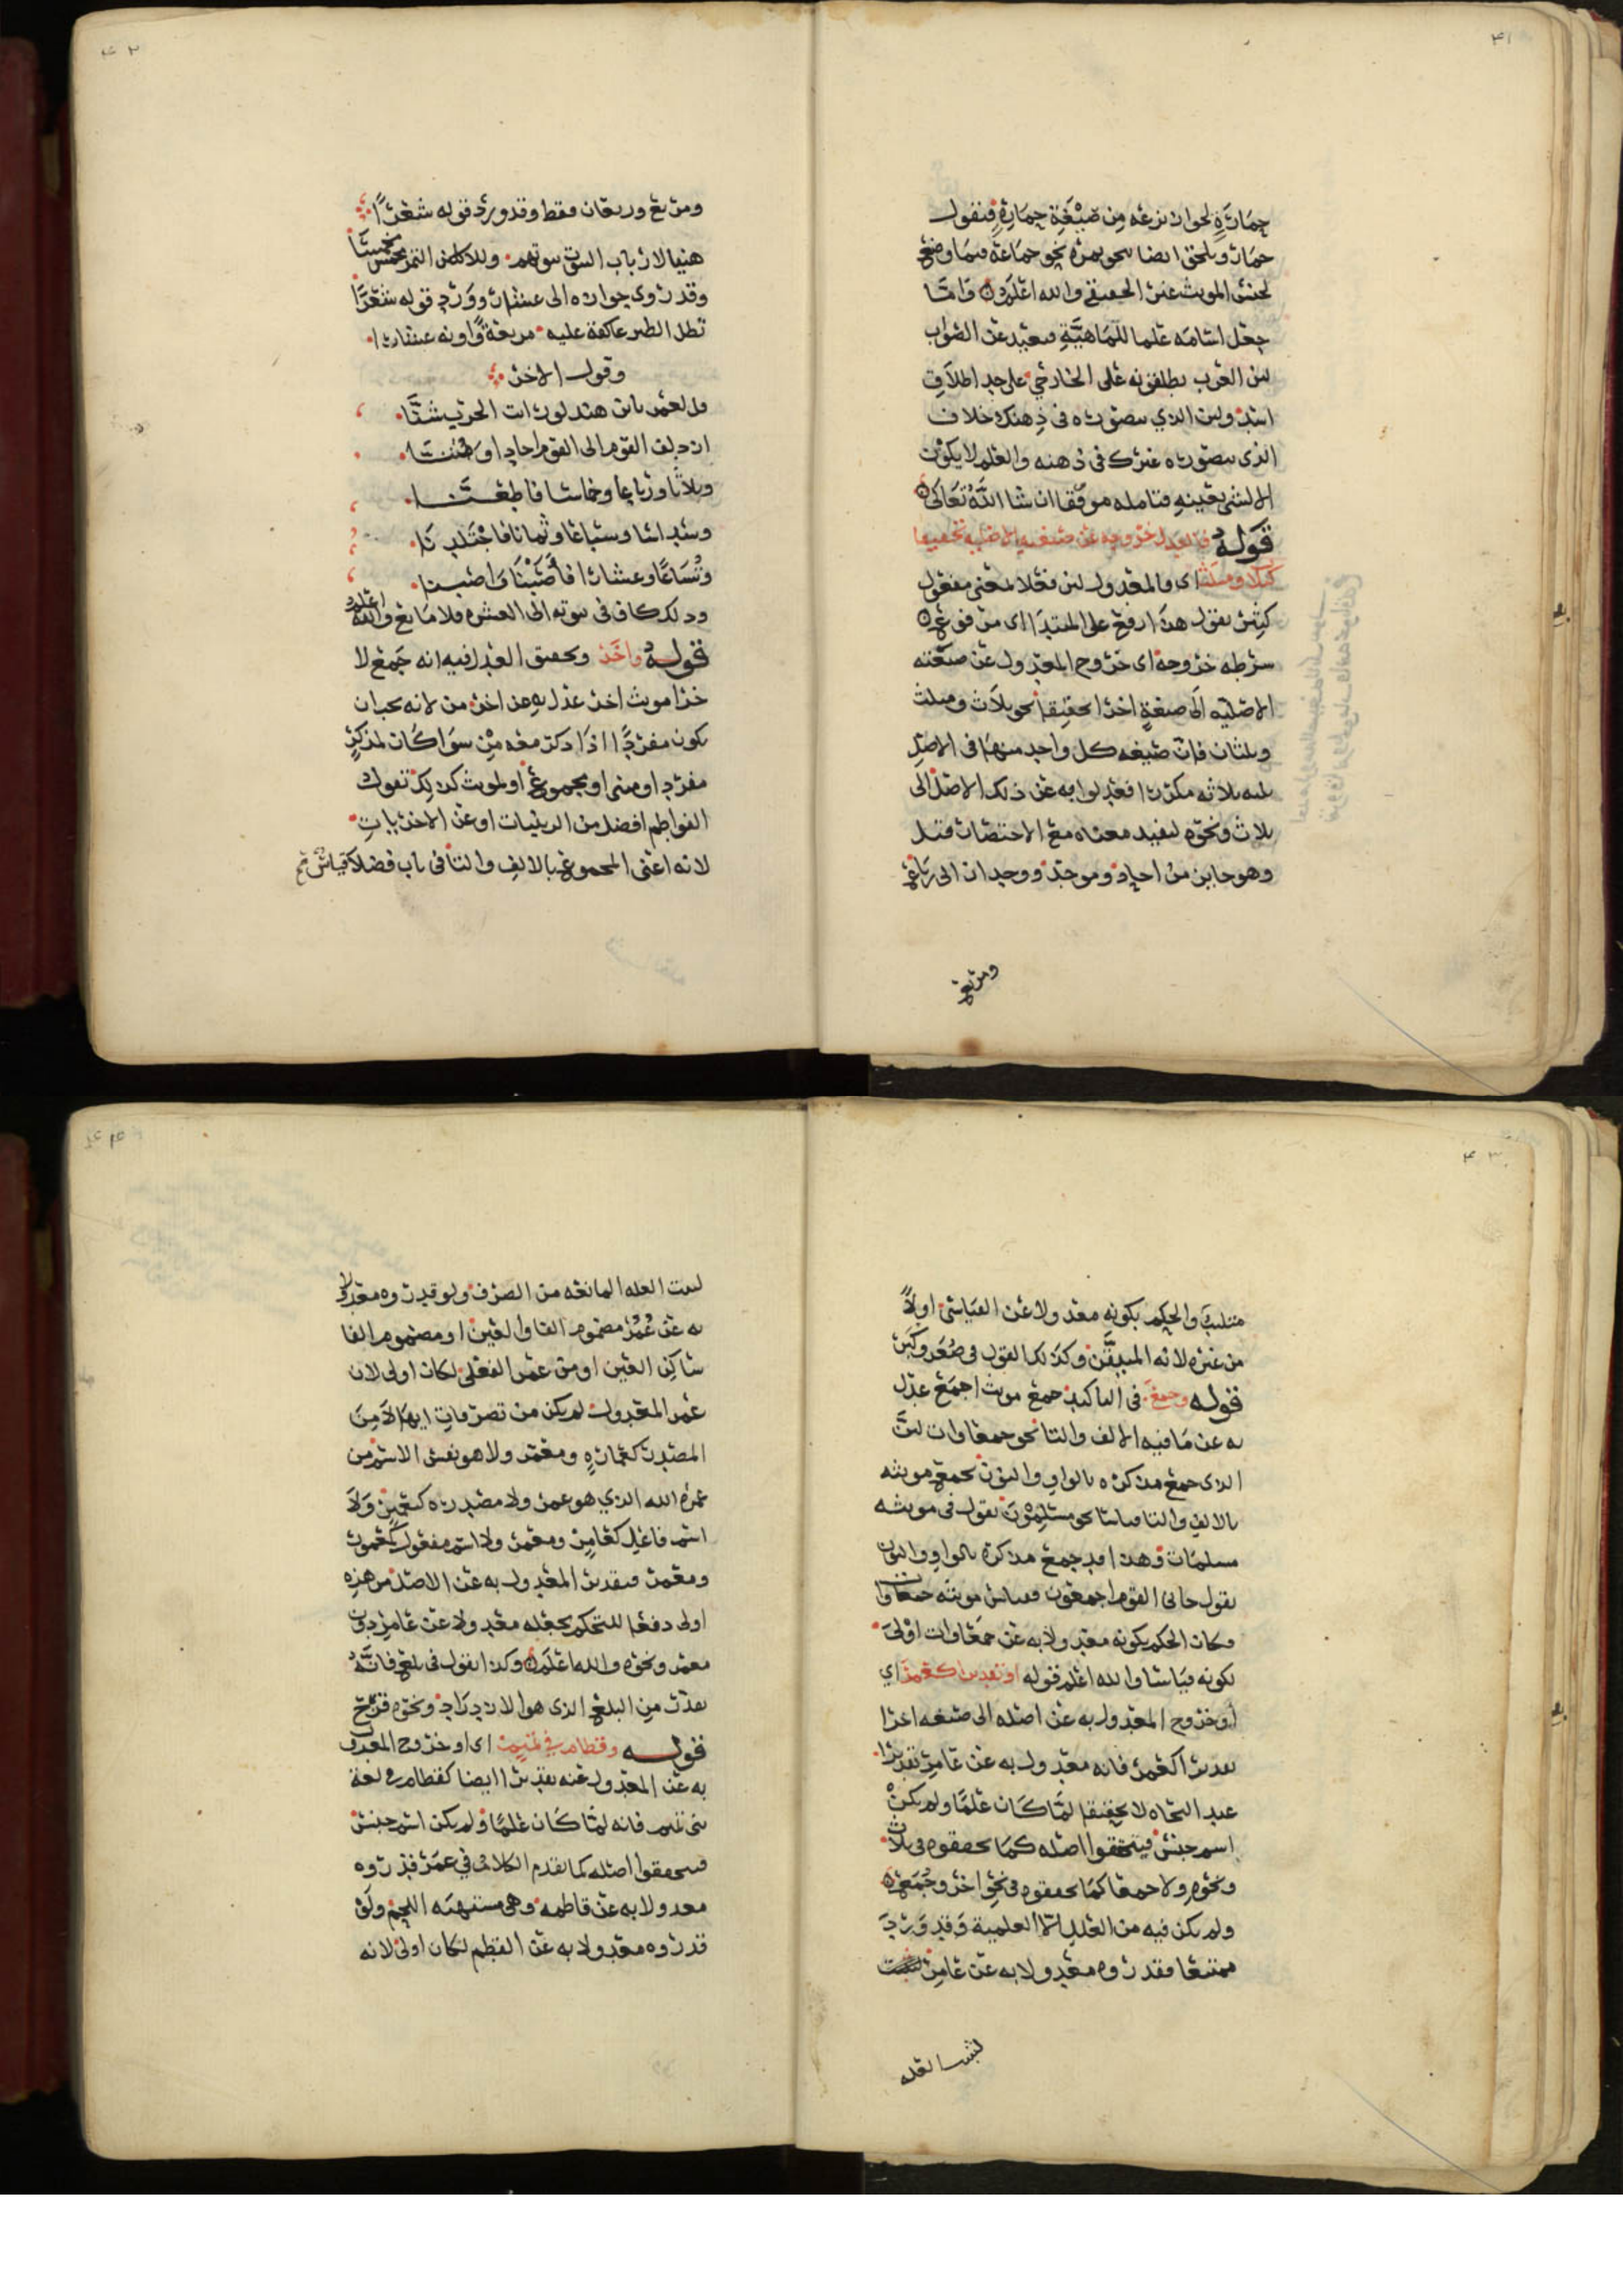 ٤١
حمارة لجوان نزعه من صيغة حمارة فتقول
حمار ويلحق ايضا نحو بمرة نحو جماعة فيما وضع
لجنس المونث غير الحقيقي والله اعلم واما
جعل اسامه علما للماهية فبعيد عن الصواب
لان العرب يطلقونه على الخارجي على حد اطلاق
اسد ولان الذي يتصوره في ذهنك خلاف
الذي يتصوره غيرك في ذهنه والعلم لا يكون
الا لشي بعينه فتامله موفقا ان شا الله تعالى
قوله فالعدل خروجه عن صيغته الاصلية تحقيقا
كثلاث ومثلث اي والمعدول لان فعلا بمعنى مفعول
كثير يقول هذا رفع على المبتدا اي مرفوع
شرطه خروجه اي خروج المعدول عن صيغته
الاصليه الى صيغة اخرا تحقيقا نحو ثلاث ومثلث
وثلثان فان صيغه كل واحد منهما في الاصل
ثلثه ثلاثه مكررا فعدلوا به عن ذلك الاصل الى
ثلاث ونحوه ليفيد معناه مع الاختصار قيل
وهو جايز من احاد وموحد ووحدان الى رباع
ومربع
٤٢
ومربع وربعان فقط وقد ورد قوله شعرا
هنيا لارباب البيوت بيوتهم وللاكلين التمر مخمسا
وقد روي جوازه الى عشار وورد قوله شعرا
تظل الطير عاكفة عليه مربعة واونه عشارا
وقول الاخر
قل لعمر يابن هند لو رايت الحرب شنا
اذ دلف القوم الى القوم احاد او مثنا
وثلاثا ورباعا وخماسا فاطعنا
وسداسا وسباعا وثمانا فاجتلدنا
وتساعا وعشارا فاصبنا واصبنا
وذلك كاف في ثبوته الى العشره فلا مانع والله اعلم
قوله واخر وتحقيق العدل فيه انه جمع لا
خرا مونث اخر عدل به عن اخر من لانه يجب ان
يكون مفردا اذا ذكر معه من سوا كان لمذكر
مفرد او مثنى او مجموع او لمونث كذلك تقول
الفواطم افضل من الزينبات او عن الاخريات
لانه اعنى المجموع بالالف والتا في باب فضلا قياس
٤٣
متلئب والحكم بكونه معدولا عن القياسي اولا
من غيره لانه المتيقن وكذلك القول في صغر وكبر
قوله وجمع في التاكيد جمع مونث اجمع عدل
به عن ما فيه الالف والتا نحو جمعاوات لان
الذي جمع مذكره بالواو والنون يجمع مونثه
بالالف والتا قياسا نحو مسلمون تقول في مونثه
مسلمات وهذا قد جمع مذكره بالواو والنون
تقول جاني القوم اجمعون فقياس مونثه جمعاوات
فكان الحكم بكونه معدولا به عن جمعاوات اولى
لكونه قياسا والله اعلم قوله او تقديرا كعمر اي
او خروج المعدول به عن اصله الى صيغه اخرا
تقديرا كعمر فانه معدول به عن عامر تقديرا
عند النحاه لا تحقيقا لما كان علما ولم يكن
اسم جنس فيتحققوا اصله كما تحققوه في ثلاث
ونحوه ولا جمعا كما تحققوه في نحو اخر وجمع
ولم يكن فيه من العلل الا العلمية وقد ورد
ممتنعا فقدروه معدولا به عن عامر
لثبت العله
٤٤
لثبت العله المانعه من الصرف ولو قدروه معدولا
به عن عمر مضموم الفا والعين او مضموم الفا
ساكن العين او من عمر الفعلي لكان اولى لان
عمر المعدول لم يكن من تصرفات ايهما لا من
المصدر كعمارة ومعتمر ولا هو نفس الاسم من
عمره الله الذي هو عمر ولا مصدره كتعمير ولا
اسم فاعل كعامر ومعمر ولا اسم مفعول كمعمور
ومعمر فتقدير المعدول به عن الاصل من هذه
اولى دفعا للتحكم بجعله معدولا عن عامر دون
معمر ونحوه والله اعلم وكذا نقول في بلع فانه
يقدر من البلع الذي هو الازدراد ونحوه قزح
قوله وقطام في تميم اي او خروج المعدول
به عن المعدول عنه تقديرا ايضا كقطام في لغة
بني تميم فانه لما كان علما ولم يكن اسم جنس
فيتحققوا اصله كما تقدم الكلام في عمر قدروه
معدولا به عن قاطمه وهي مشتهيه اللحم ولو
قدروه معدولا به عن القطم لكان اولى لانه